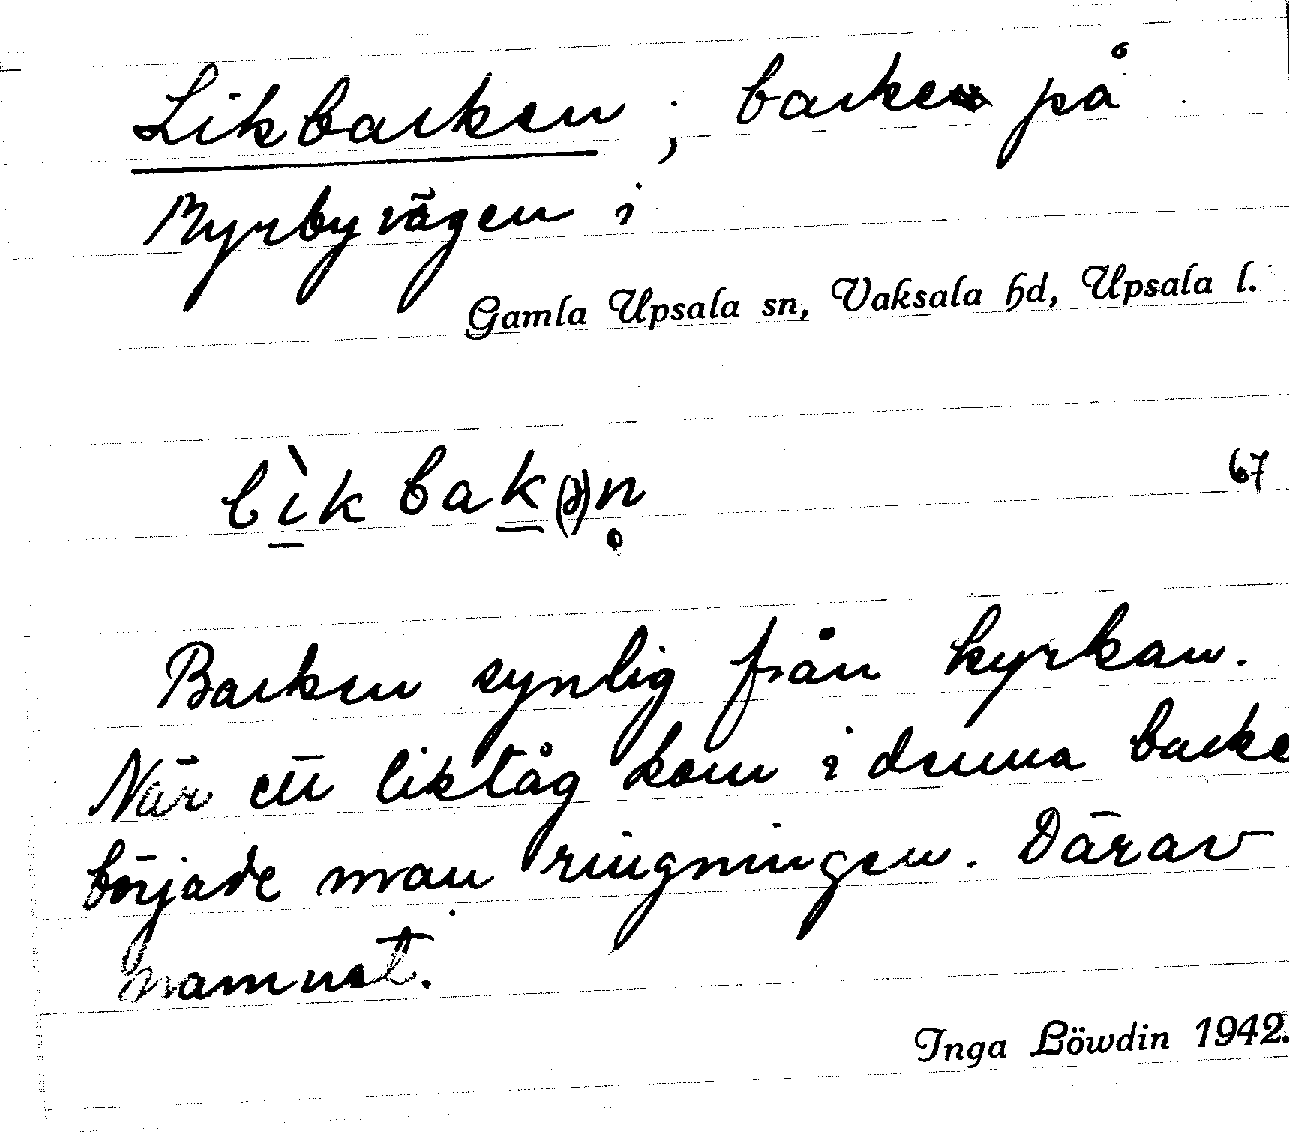 Likbacken; backe på
Myrbyvägen i
Gamla Upsala sn, Vaksala hd, Upsala l.
lìkbak(ə)n̥
67
Backen synlig från kyrkan.
När ett liktåg kom i denna backe
började man ringningen. Därav
namnet.
Inga Löwdin 1942.